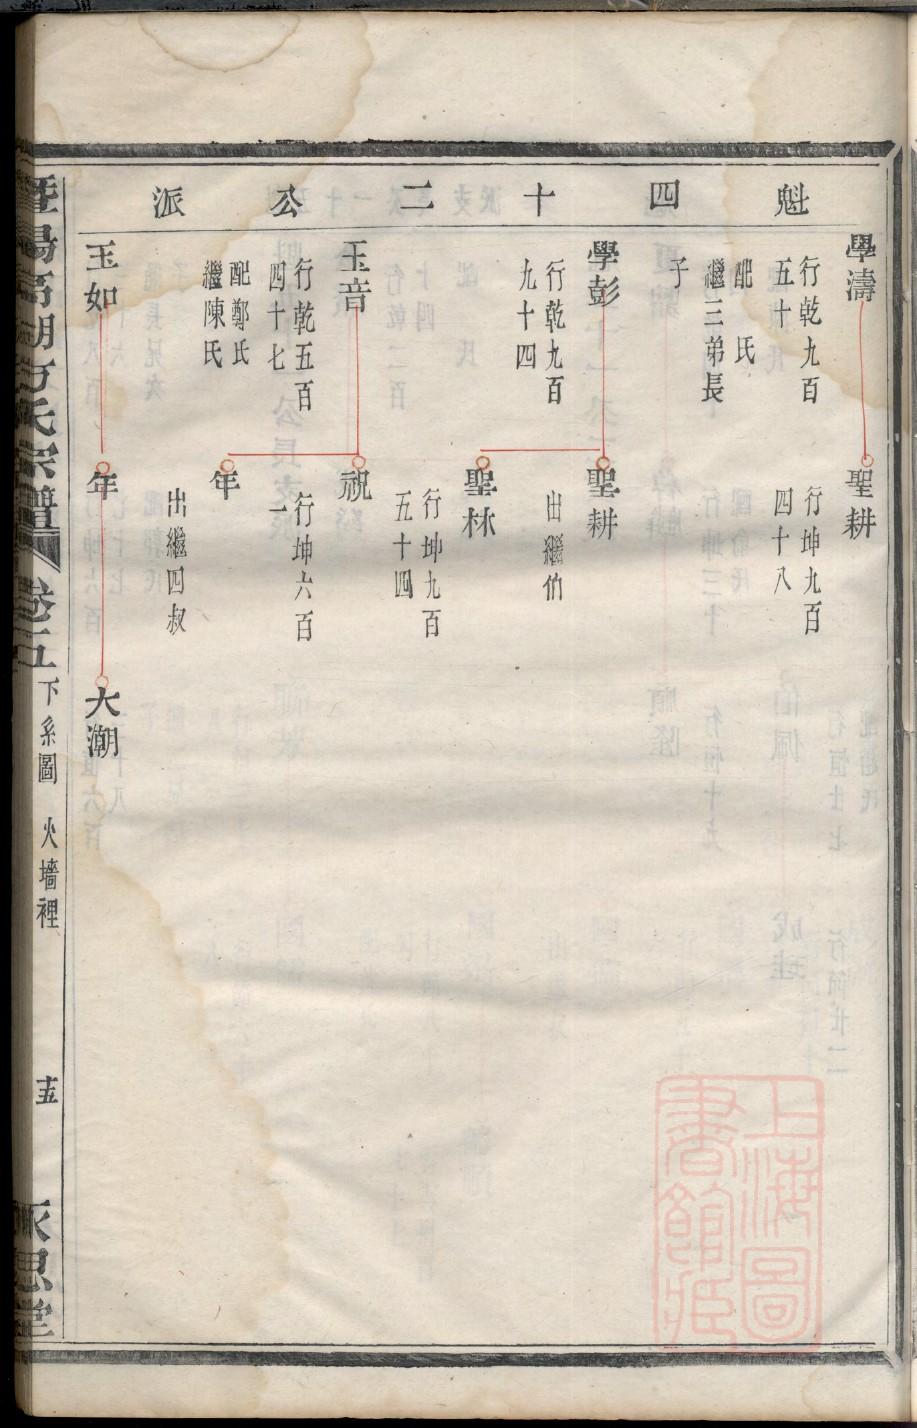 魁四十二公派
學濤
行乾九百
五十
配　氏
繼三弟長
子
聖耕
行坤九百
四十八
學彭
行乾九百
九十四
聖耕
出繼伯
聖林
行坤九百
五十四
玉音
行乾五百
四十七
配鄭氏
繼陳氏
祝
行坤六百
一
年
出繼四叔
玉如
年
大潮
氏宗譜
卷五
下系圖
火墻裡
十五
永思堂
上海圖
書館藏